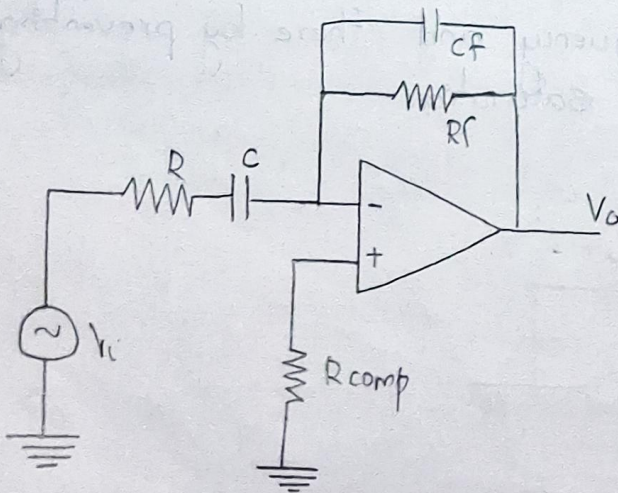 Cf
Rf
R C
-
V₀
+
~ Vi
R comp